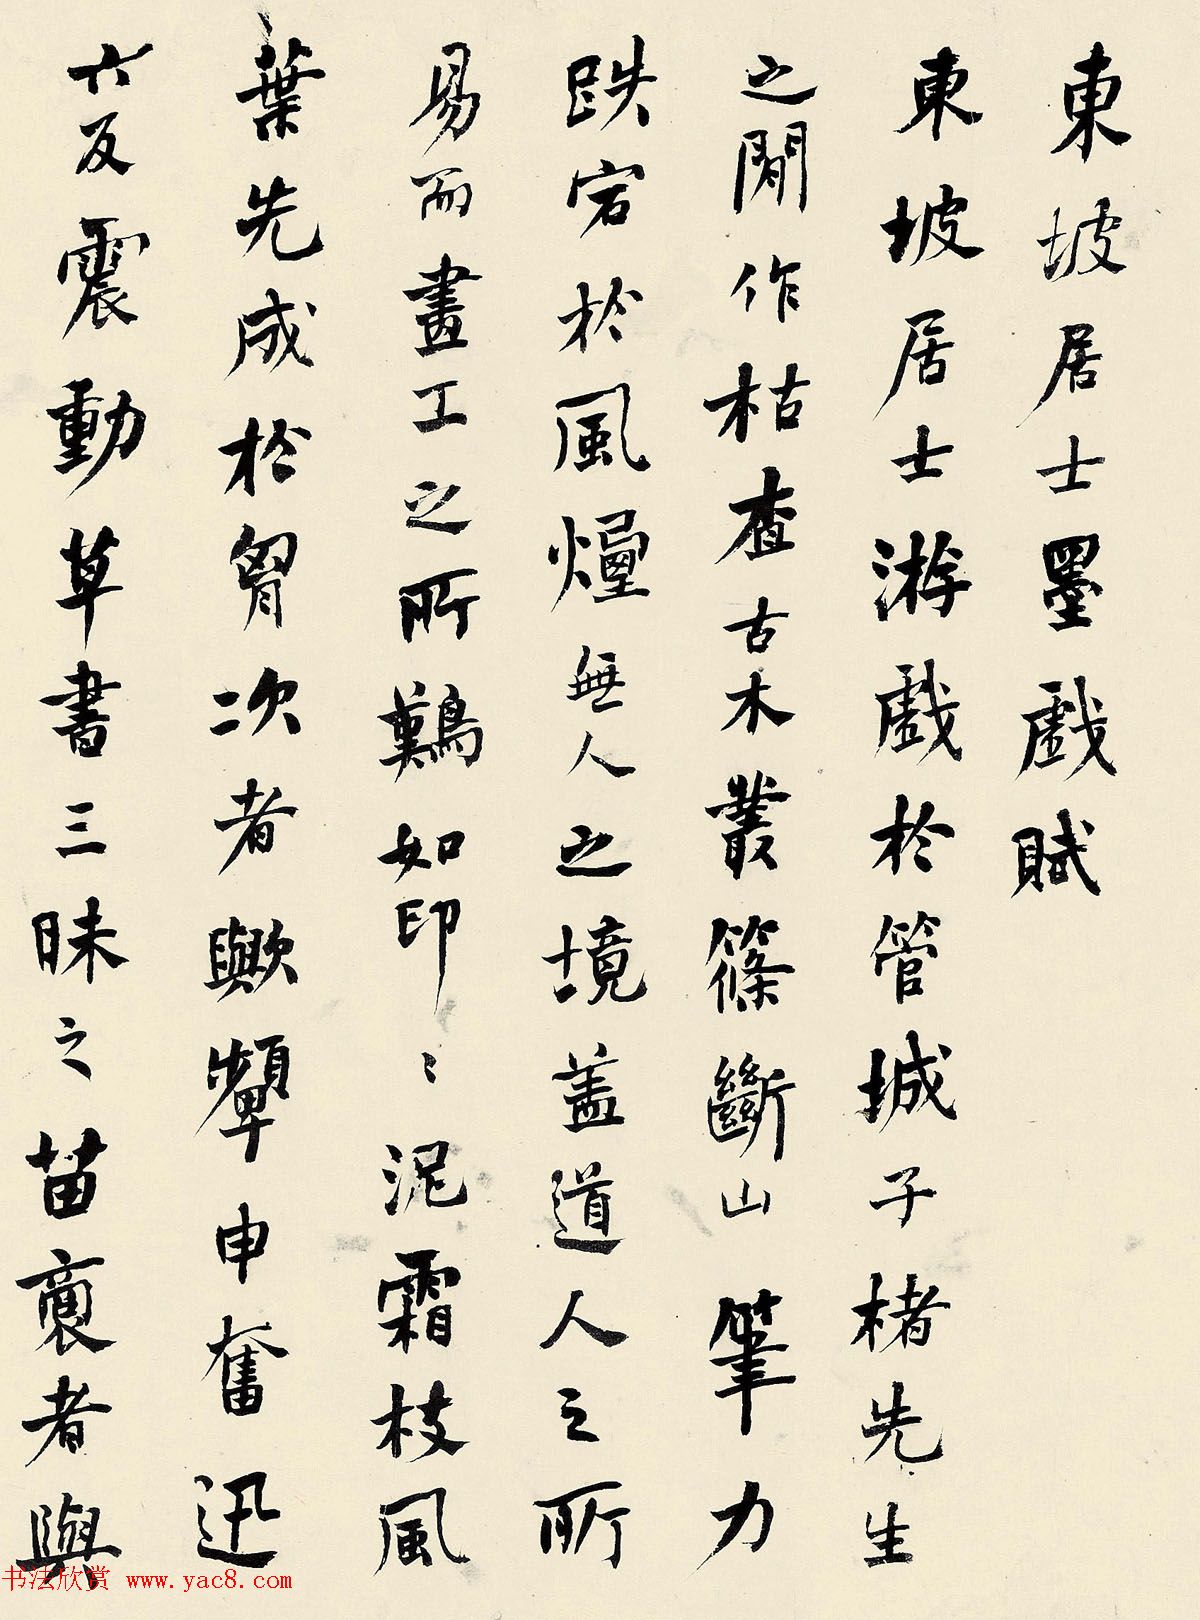 東坡居士墨戲賦
東坡居士游戲於管城子楮先生
之間作枯槎古木叢篠斷山筆力
跌宕於風煙無人之境盖道人之所
易而畫工之所難如印〻泥霜枝風
葉先成於胷次者歟顰申奮迅
六反震動草書三昧之苗裔者與
书法欣赏 www.yac8.com